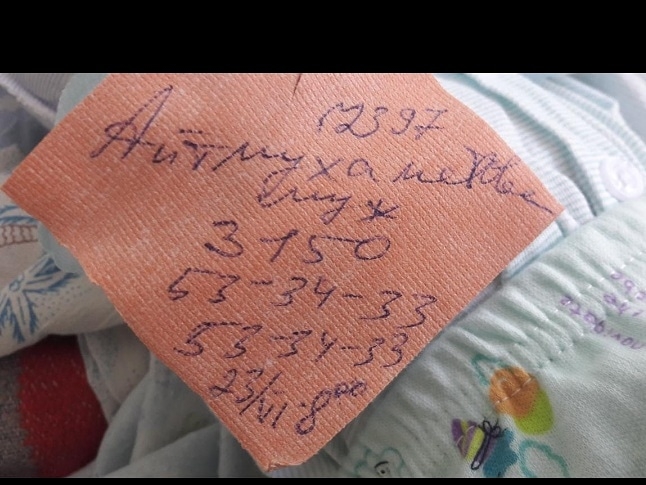 12397
Айтмухаметова
муж
3150
53-34-33
53-34-33
23/VII-8⁰⁰